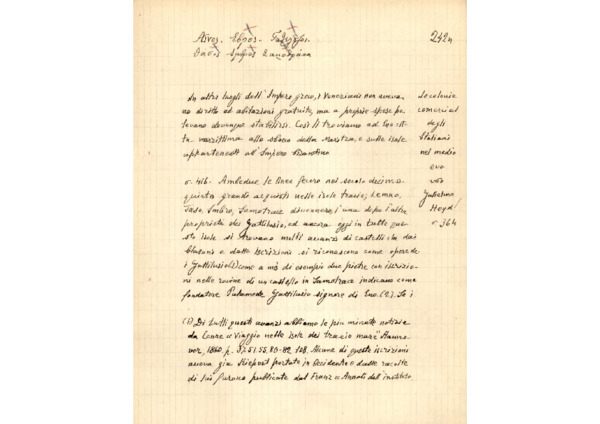 Αίνος. Εβρος. Γαδιλούζοι.
Θάσος Ίμβρος Σαμοθράκη
242a
In altri luoghi dell'Impero greco, i Veneziani non aveva-
no diritto ad abitazioni gratuite, ma a proprie spese po-
tevano dovunque stabilirsi. Così li troviamo ad Eno cit-
tà marittima allo sbocco della Maritza, e sulle isole
appartenenti all'Impero Bizantino
Le colonie
comerciali
degli
Italiani
nel medio
evo
von
Guglielmo
Heyd
σ. 364
σ. 416. Ambedue le linee fecero nel secolo decimo-
quinto grandi acquisti nelle isole tracie; Lemno,
Taso, Imbro, Samotrace divennero, l'una dopo l'altra
proprietà dei Gattilusio, ed ancora oggi in tutte que-
ste isole si trovano molti avanzi di castelli che dai
blasoni e dalle iscrizioni si riconoscono come opere dei
Gattilusio(1) come a mò di esempio due pietre con iscrizio-
ni nelle rovine di un castello in Samotrace indicano come
fondatore Palamede Gattilusio signore di Eno. (2).
(1) Di tutti questi avanzi abbiamo le più minute notizie
da Conze "Viaggio nelle isole del tracio mare" Hanno-
ver, 1860. p. 37. 51. 55. 80-82. 108. Alcune di queste iscrizioni
aveva già Kiepert portate in Occidente e dalle raccolte
di lui furono pubblicate dal Franz "Annali dell'instituto